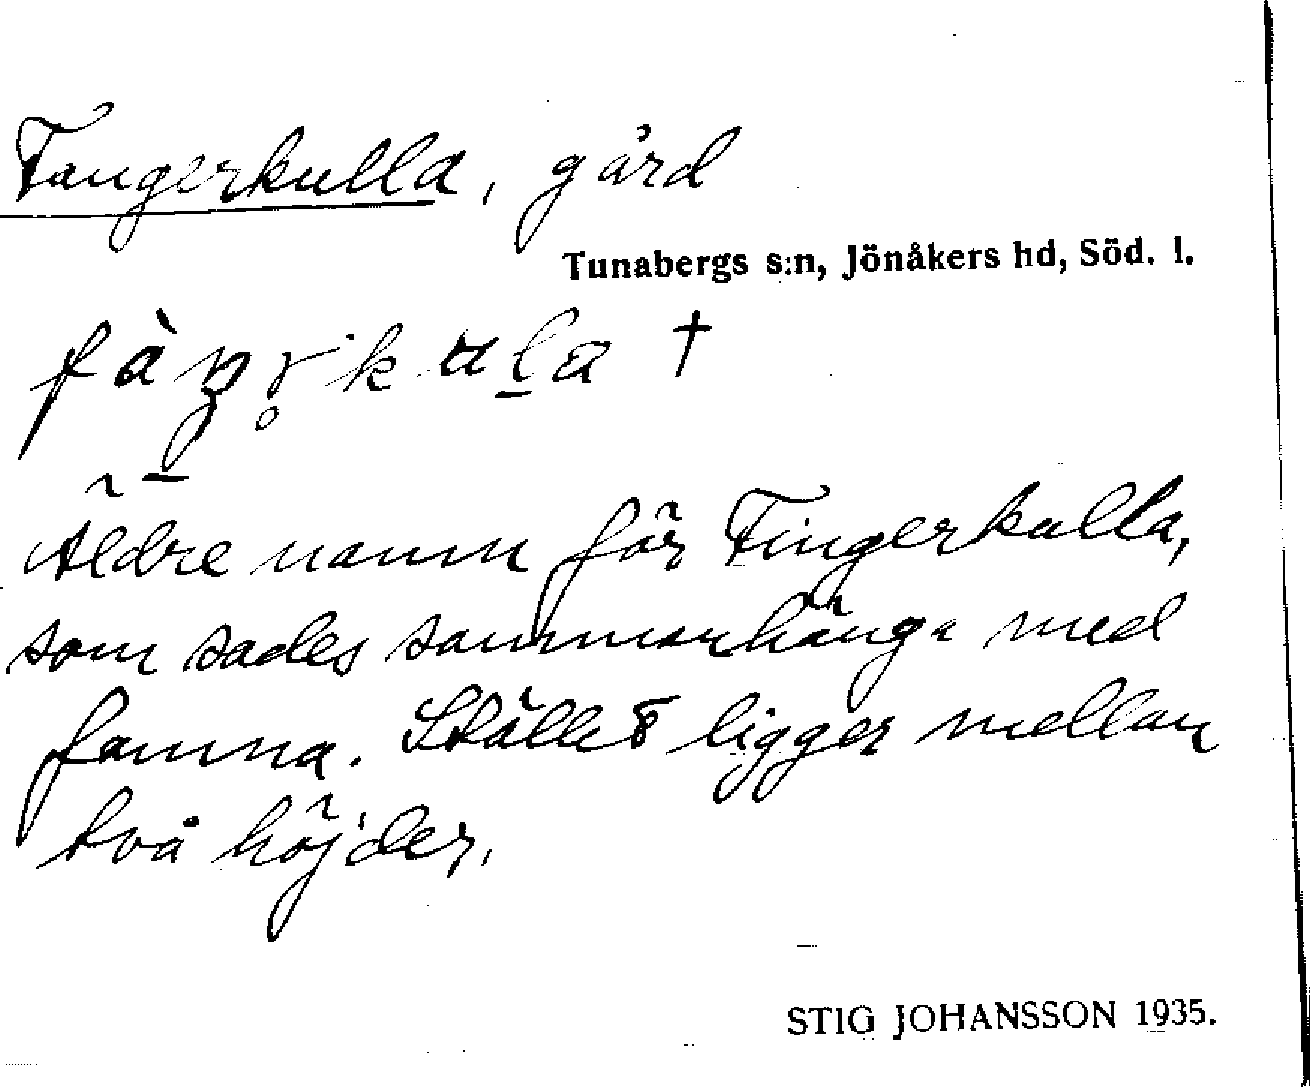 Fangerkulla, gård
Tunabergs s:n, Jönåkers hd, Söd. l.
fàŋr̥kula †
Äldre namn för Fingerkulla,
som sades sammanhänga med
famna. Stället ligger mellan
två höjder.
STIG JOHANSSON 1935.